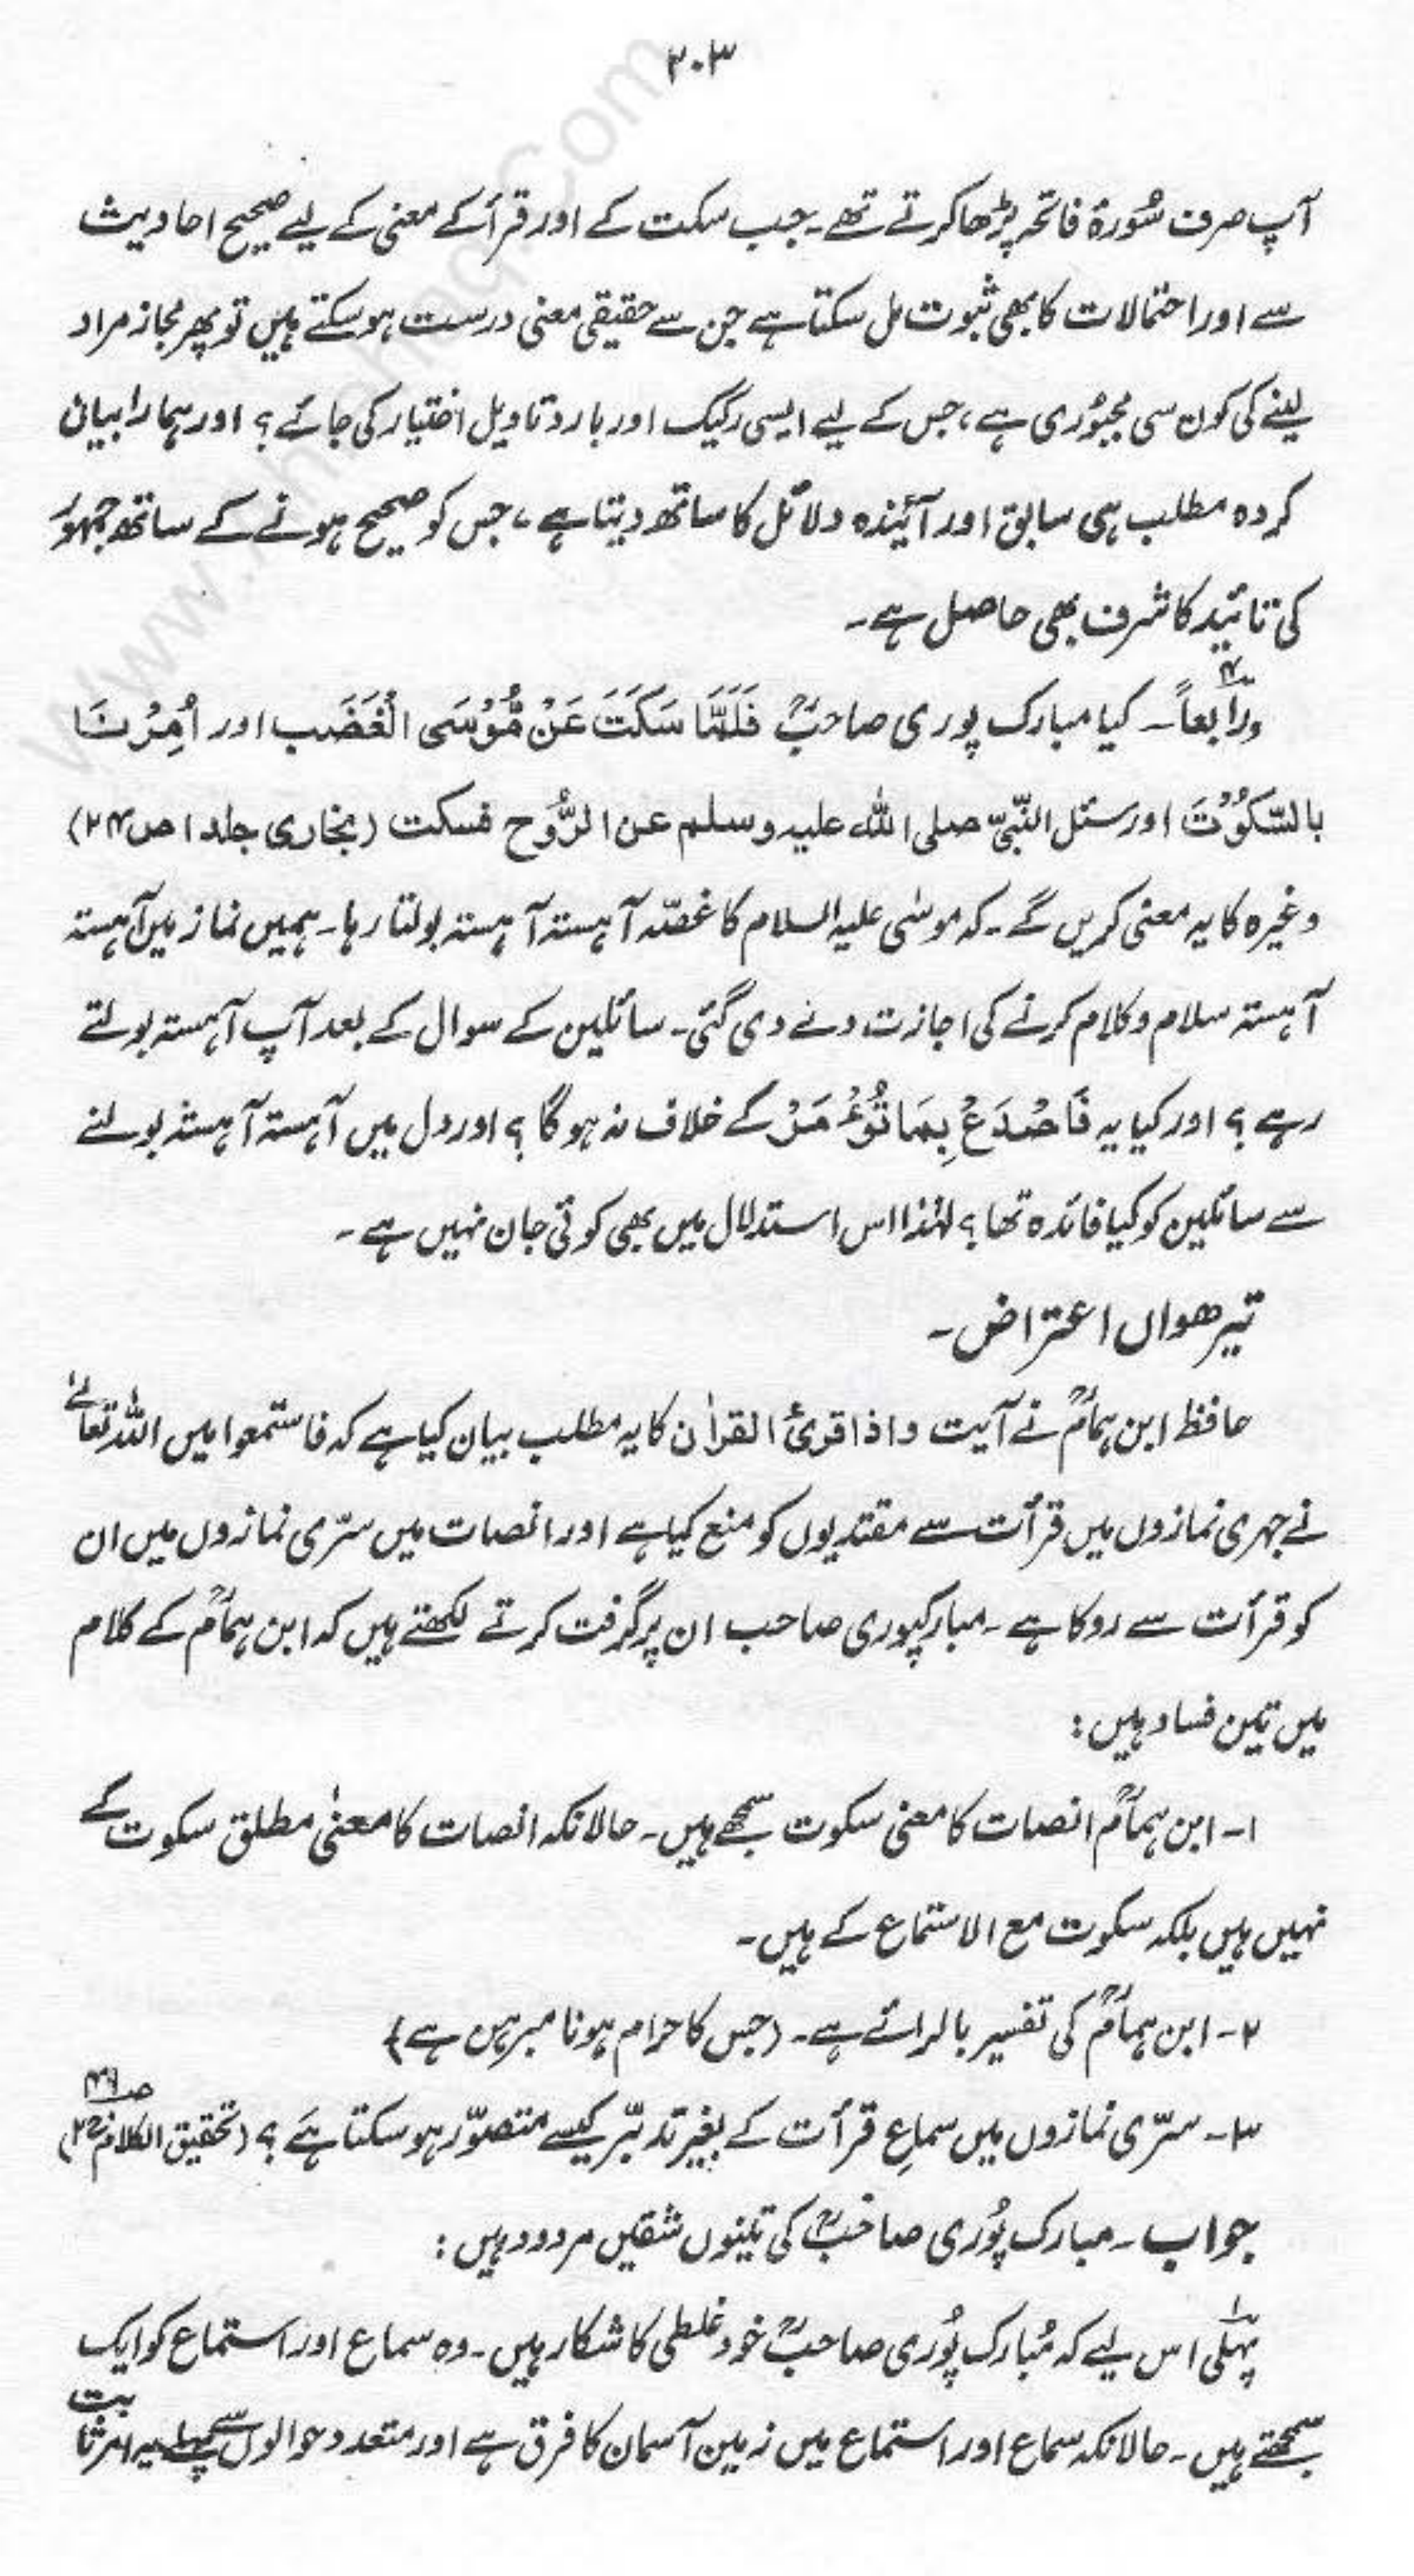 ۲۰۳
آپ صرف سُورۂ فاتحہ پڑھا کرتے تھے۔ جب سکت کے اور قرأ کے معنی کے لیے صحیح احادیث
سے اور احتمالات کا بھی ثبوت مل سکتا ہے جن سے حقیقی معنی درست ہو سکتے ہیں تو پھر مجاز مراد
لینے کی کون سی مجبوُری ہے، جس کے لیے ایسی رکیک اور بارد تاویل اختیار کی جائے؟ اور ہمارا بیان
کردہ مطلب ہی سابق اور آئیندہ دلائل کا ساتھ دیتا ہے، جس کو صحیح ہونے کے ساتھ جمہور
کی تائید کا شرف بھی حاصل ہے۔
ورابعاً۔ کیا مبارک پوری صاحبؒ فَلَمَّا سَكَتَ عَنْ مُّوْسَى الْغَضَب اور اُمِرْنَا
بالسّكُوْتَ اور سئل النّبیّ صلی اللہ علیہ وسلم عن الرُّوح فسکت (بخاری جلد ۱ ص۲۴)
وغیرہ کا یہ معنی کریں گے۔ کہ موسٰی علیہ السلام کا غصّہ آہستہ آہستہ بولتا رہا۔ ہمیں نماز میں آہستہ
آہستہ سلام و کلام کرنے کی اجازت دے دی گئی۔ سائلین کے سوال کے بعد آپ آہستہ بولتے
رہے؟ اور کیا یہ فَاصْدَعْ بِمَا تُؤْمَرْ کے خلاف نہ ہوگا؟ اور دل میں آہستہ آہستہ بولنے
سے سائلین کو کیا فائدہ تھا؟ لہٰذا اس استدلال میں بھی کوئی جان نہیں ہے۔
تیرھواں اعتراض۔
حافظ ابن ہمامؒ نے آیت واذا قرئ القراٰن کا یہ مطلب بیان کیا ہے کہ فاستمعوا میں اللہ تعالےٰ
نے جہری نمازوں میں قرأت سے مقتدیوں کو منع کیا ہے اور انصات میں سرّی نمازوں میں ان
کو قرأت سے روکا ہے۔ مبارکپوری صاحب ان پر گرفت کرتے لکھتے ہیں کہ ابن ہمامؒ کے کلام
میں تین فساد ہیں:
۱۔ ابن ہمامؒ انصات کا معنی سکوت سمجھے ہیں۔ حالانکہ انصات کا معنیٰ مطلق سکوت کے
نہیں ہیں بلکہ سکوت مع الاستماع کے ہیں۔
۲۔ ابن ہمامؒ کی تفسیر بالرائے ہے۔ (جس کا حرام ہونا مبرہن ہے)
۳۔ سرّی نمازوں میں سماعِ قرأت کے بغیر تدبّر کیسے متصوّر ہو سکتا ہَے؟ (تحقیق الکلام ج۲)
جواب۔ مبارک پُوری صاحبؒ کی تینوں شقیں مردود ہیں:
پہلی اس لیے کہ مُبارک پُوری صاحبؒ خود غلطی کا شکار ہیں۔ وہ سماع اور استماع کو ایک
سمجھتے ہیں۔ حالانکہ سماع اور استماع میں زمین آسمان کا فرق ہے اور متعدد حوالوں سے پہلے یہ امر ثابت